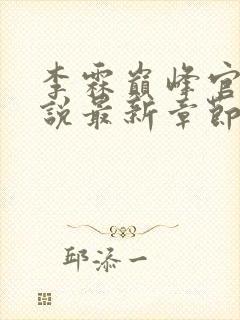 李霖巅峰官
说最新章节
邱添一